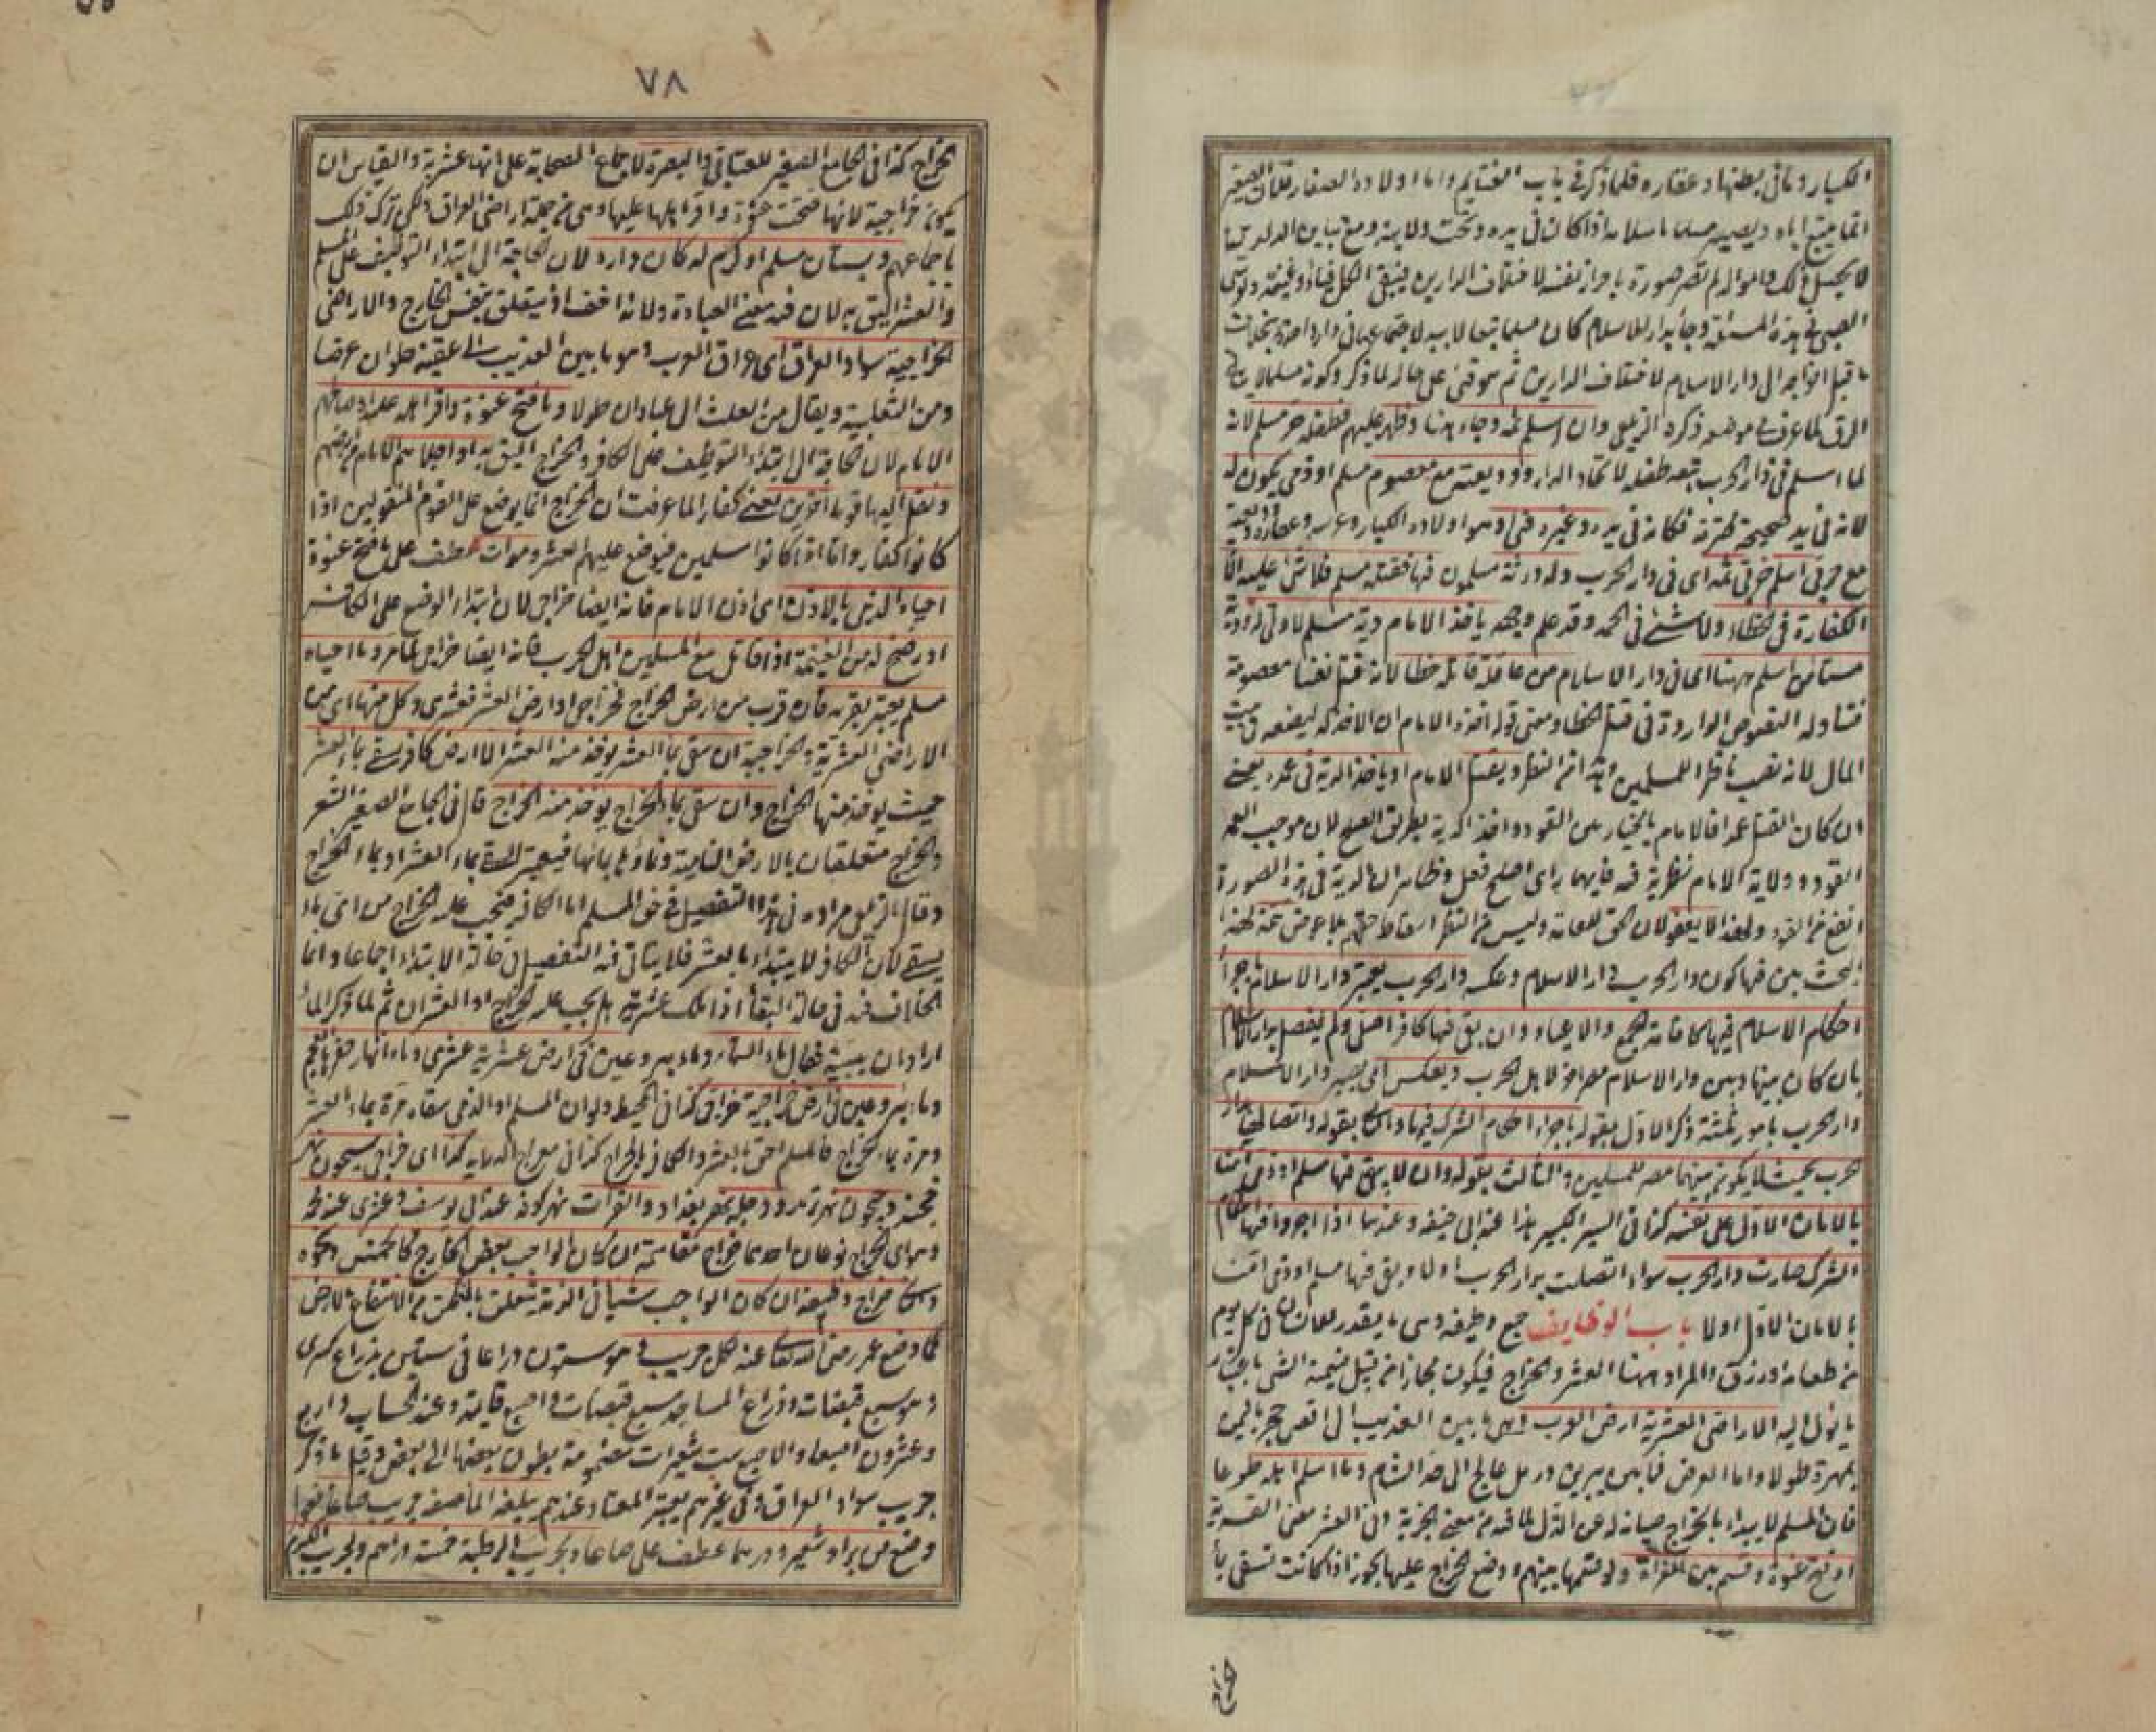 الكبار وما في بطنها وعقاره فلما ذكر في باب الغنايم واما اولاده الصغار فلان الصغير
انما يتبع اباه ويصير مسلما باسلامه اذا كان في يده وتحت ولايته ومع تباين الدارين
لا يحصل ذلك واموالهم لم تصر محرزة باحراز نفسه لاختلاف الدارين فيبقى الكل فيئا وغنيمة ولو سبى
الصبي في هذه المسئلة وجاء دار الاسلام كان مسلما تبعا لابيه لاجتماعهما في دار واحدة بخلاف
ما قبل اخراجه الى دار الاسلام لاختلاف الدارين ثم هو فيء على حاله لما ذكر وكونه مسلما لا ينافي
الرق لما عرف في موضعه ذكره الزيلعي وان اسلم ثمه وجاء هنا وظهر عليهم فطفله حر مسلم لانه
لما اسلم في دار الحرب تبعه طفله لاتحاد الدار ووديعته مع معصوم مسلم او ذمي يكون له
لانه في يد صحيحة محترمة فكانه في يده وغيره فيء وهو اولاده الكبار وعرسه وعقاره ووديعته
مع حربي اسلم حربي ثمه اى في دار الحرب وله ورثة مسلمون فيها فقتله مسلم فلا شئ عليه الا
الكفارة في الخطاء ولا شئ في العمد وقد علم وجهه ياخذ الامام دية مسلم لا ولي له ودية
مستأمن اسلم ههنا اى في دار الاسلام من عاقلة قاتله خطأ لانه قتل نفسا معصومة
فتناوله النصوص الواردة في قتل الخطا ومعنى قوله اخذه الامام ان الاخذ له ليضعه في بيت
المال لانه نصب ناظرا للمسلمين وهذا من النظر ويقتل الامام او ياخذ الدية في عمد يعنى
ان كان القتل عمدا فالامام بالخيار بين القود واخذ الدية بطريق الصلح لان موجب العمد
القود وولاية الامام نظرية فيه فايهما راى اصلح فعل وظاهر ان الدية في هذه الصورة
انفع من القود ولهذا لا يعفو لان الحق للعامة وليس من النظر اسقاط حقهم بلا عوض
البحث بين فيها كون دار الحرب دار الاسلام وعكسه دار الحرب يصير دار الاسلام باجراء
احكام الاسلام فيها كاقامة الجمع والاعياد وان بقى فيها كافر اصلى ولم يتصل بدار الاسلام
بان كان بينها وبين دار الاسلام مصر اخر لاهل الحرب وبعكس اى يصير دار الاسلام
دار الحرب بامور ثلثة ذكر الاول بقوله باجراء احكام الشرك فيها والثانى بقوله واتصالها بدار
الحرب بحيث لا يكون بينهما مصر للمسلمين والثالث بقوله وان لا يبقى فيها مسلم او ذمي آمنا
بالامان الاول على نفسه كذا في السير الكبير هذا عند ابى حنيفة وعندهما اذا اجروا فيها احكام
الشرك صارت دار الحرب سواء اتصلت بدار الحرب اولا وبقى فيها مسلم او ذمي آمنا
بالامان الاول اولا باب الوظايف جمع وظيفة وهى ما يقدر للانسان في كل يوم
من طعام او رزق والمراد ههنا العشر والخراج فيكون مجازا من قبيل تسمية الشئ باعتبار
ما يؤل اليه الاراضى العشرية ارض العرب وهى ما بين العذيب الى اقصى حجر باليمن
بمهرة طولا واما العرض فما بين يبرين ورمل عالج الى حد الشام وما اسلم اهله طوعا
فان المسلم لا يبدأ بالخراج صيانة له عن الذل لما فيه من معنى الجزية وفى العشر معنى القربة
او فتح عنوة وقسم بين الغزاة ولو قسمها بينهم ووضع الخراج عليها يجوز اذا كانت تسقى بماء
خراج
٧٨
الخراج كذا في الجامع الصغير للعتابي والبصرة لاجماع الصحابة على انها عشرية والقياس ان
يكون خراجية لانها فتحت عنوة واقر اهلها عليها وهى من جملة اراضى العراق ولكن ترك ذلك
باجماعهم وبستان مسلم او كرم له كان داره لان الحاجة الى ابتداء التوظيف على المسلم
والعشر اليق به لان فيه معنى العبادة ولانه اخف اذ يتعلق بنفس الخارج والاراضى
الخراجية سواد العراق اى عراق العرب وهو ما بين العذيب الى عقبة حلوان عرضا
ومن الثعلبية ويقال من العلث الى عبادان طولا وما فتح عنوة واقر اهله عليه او صالحهم
الامام لان الحاجة الى ابتداء التوظيف على الكافر والخراج اليق به او اجلاهم الامام من ارضهم
ونقل اليها قوما اخرين يعنى كفارا لما عرفت ان الخراج انما يوضع على القوم المنقولين اذا
كانوا كفارا واما اذا كانوا مسلمين فيوضع عليهم العشر وموات عطف على ما فتح عنوة
احياه الذمي بالاذن اى اذن الامام فانه ايضا خراجى لان ابتداء الوضع على الكافر
او رضخ له من الغنيمة اذا قاتل مع المسلمين اهل الحرب فانه ايضا خراجى لما مر وما احياه
مسلم يعتبر بقربه فان قرب من ارض الخراج فخراجى او ارض العشر فعشرى وكل منهما اى من
الاراضى العشرية والخراجية ان سقى بماء العشر يوخذ منه العشر الا ارض كافر تسقى بماء العشر
حيث يوخذ منها الخراج وان سقى بماء الخراج يوخذ منه الخراج قال في الجامع الصغير العشر
والخراج متعلقان بالارض النامية ونماؤها بمائها فيعتبر السقى بماء العشر او بماء الخراج
وقال الزيلعي مراده في هذا التفصيل في حق المسلم اما الكافر فيجب عليه الخراج من اى ماء
يسقى لان الكافر لا يبتدأ بالعشر فلا يتأتى فيه التفصيل في حالة الابتداء اجماعا وانما
الخلاف فيه في حالة البقاء اذا ملك عشرية هل يجب عليه الخراج او العشر ان ثم لما ذكر الماء
اراد ان يبينه فقال ماء السماء وماء بئر وعين في ارض عشرية عشرى وماء انهار حفرها العجم
وماء بئر وعين في ارض خراجية خراجى كذا في المحيط ولو ان المسلم او الذمي سقاه مرة بماء العشر
ومرة بماء الخراج فالمسلم احق بالعشر والكافر بالخراج كذا في معراج الدراية كذا اى خراجى سيحون نهر
خجند وجيحون نهر ترمذ ودجلة نهر بغداد والفرات نهر كوفة عند ابى يوسف وعشرى عند محمد
وهو اى الخراج نوعان احدهما خراج مقاسمة ان كان الواجب بعض الخارج كالخمس ونحوه
والثانى خراج وظيفة ان كان الواجب شيئا في الذمة يتعلق بالتمكن من الانتفاع بالارض
كما وضع عمر رضى الله تعالى عنه لكل جريب وهو ستون ذراعا في ستين بذراع كسرى
وهو سبع قبضات وذراع المساحة سبع قبضات واصبع قائمة وعند الحساب واربع
وعشرون اصبعا والاصبع ست شعيرات مضمومة بطون بعضها الى بعض وقيل ما ذكر
جريب سواد العراق وفى غيرهم يعتبر المعتاد عندهم يبلغه الماء صفة جريب صاعا مفعول
وضع من بر او شعير ودرهما عطف على صاعا ولجريب الرطبة خمسة دراهم ولجريب الكرم